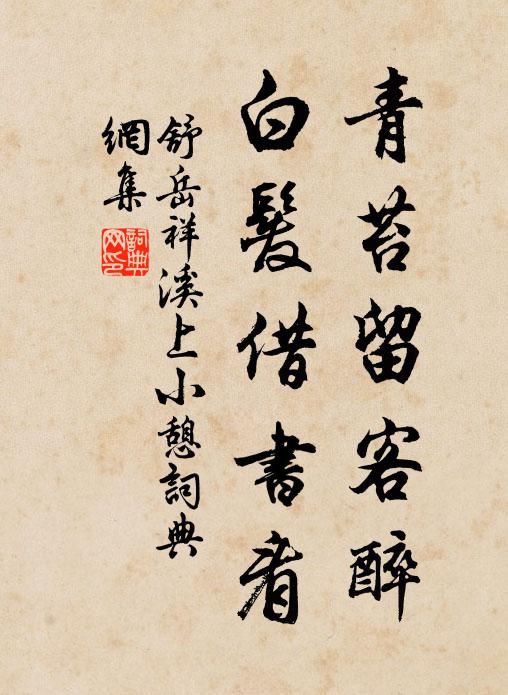 青苔留客醉
白髮借書看
舒岳祥溪上小憩詞典
網集
詞典
网印